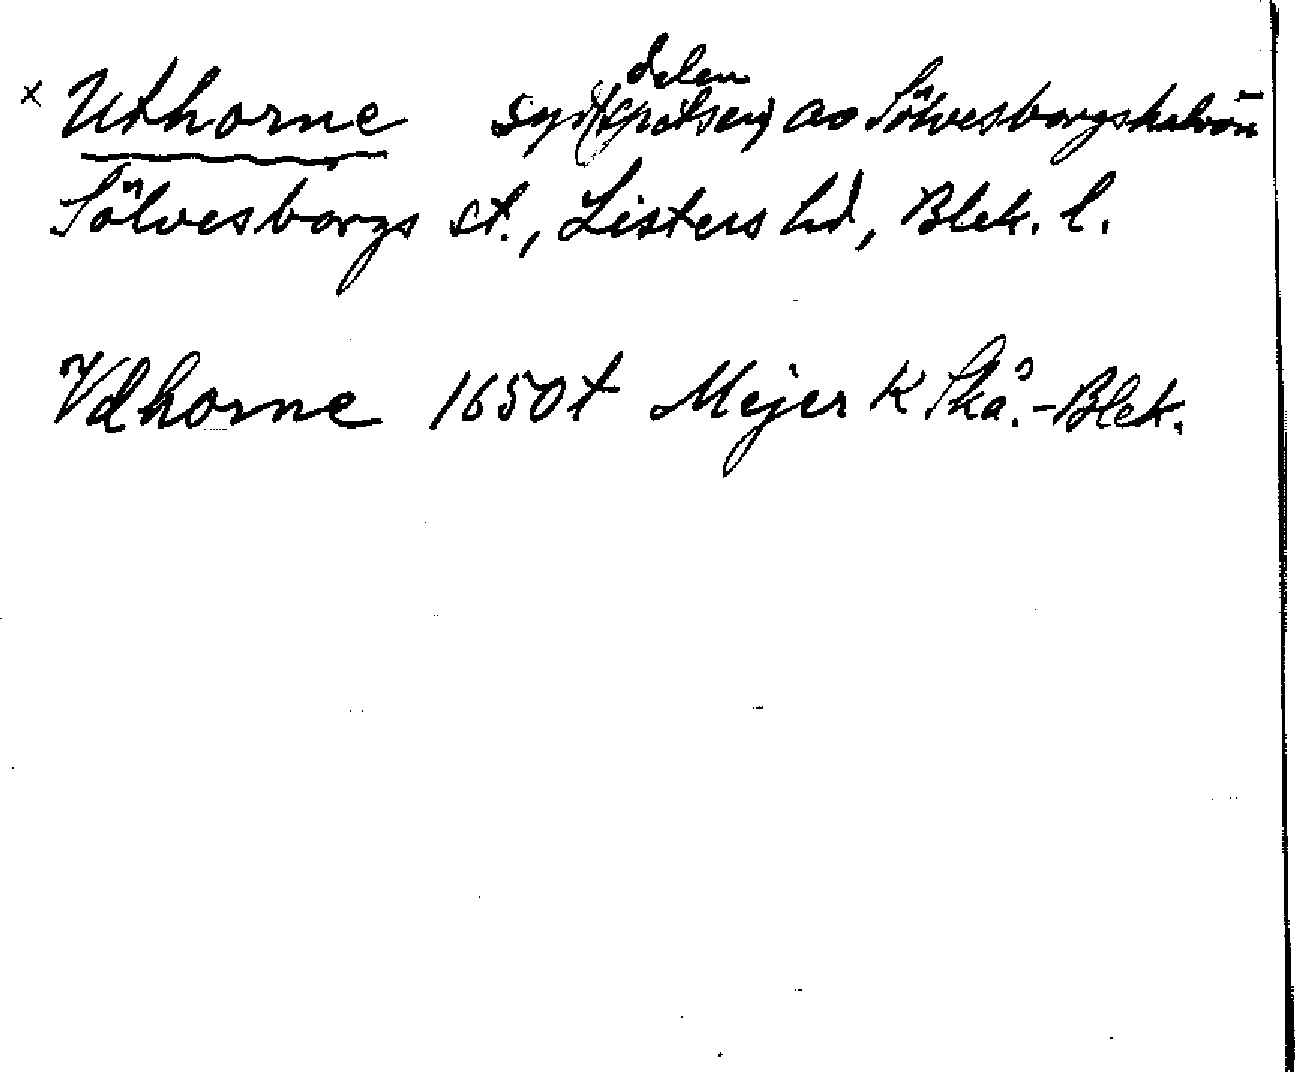 x Uthorne syd(spetsen) delen av Sölvesborgshalvön
Sölvesborgs st., Listers hd, Blek. l.
Vdhorne 1650t Mejer K Skå.-Blek.